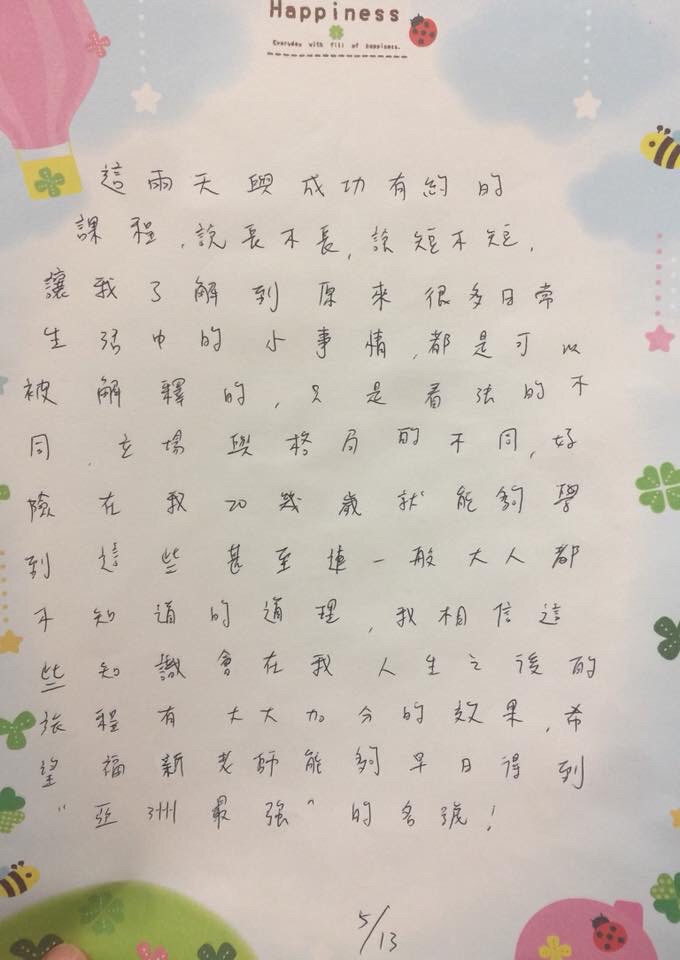 Happiness
Everyday with fill of happiness.
這兩天與成功有約的
課程,說長不長,說短不短,
讓我了解到原來很多日常
生活中的小事情,都是可以
被解釋的,只是看法的不
同,立場與格局的不同,好
險在我20幾歲就能夠學
到這些甚至連一般大人都
不知道的道理,我相信這
些知識會在我人生之後的
旅程有大大加分的效果,希
望福新老師能夠早日得到
"亞洲最強"的名號!
5/13